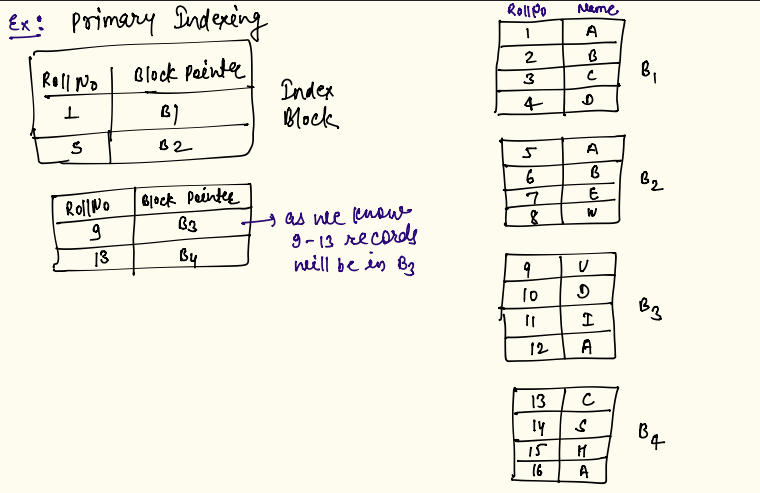 Ex: Primary Indexing
Roll No Block Pointer
1 B1
5 B2
Index
Block
Roll No Block Pointer
9 B3
13 B4
→ as we know
9-13 records
will be in B3
Roll No Name
1 A
2 B
3 C
4 D
B1
5 A
6 B
7 E
8 W
B2
9 U
10 D
11 I
12 A
B3
13 C
14 S
15 M
16 A
B4